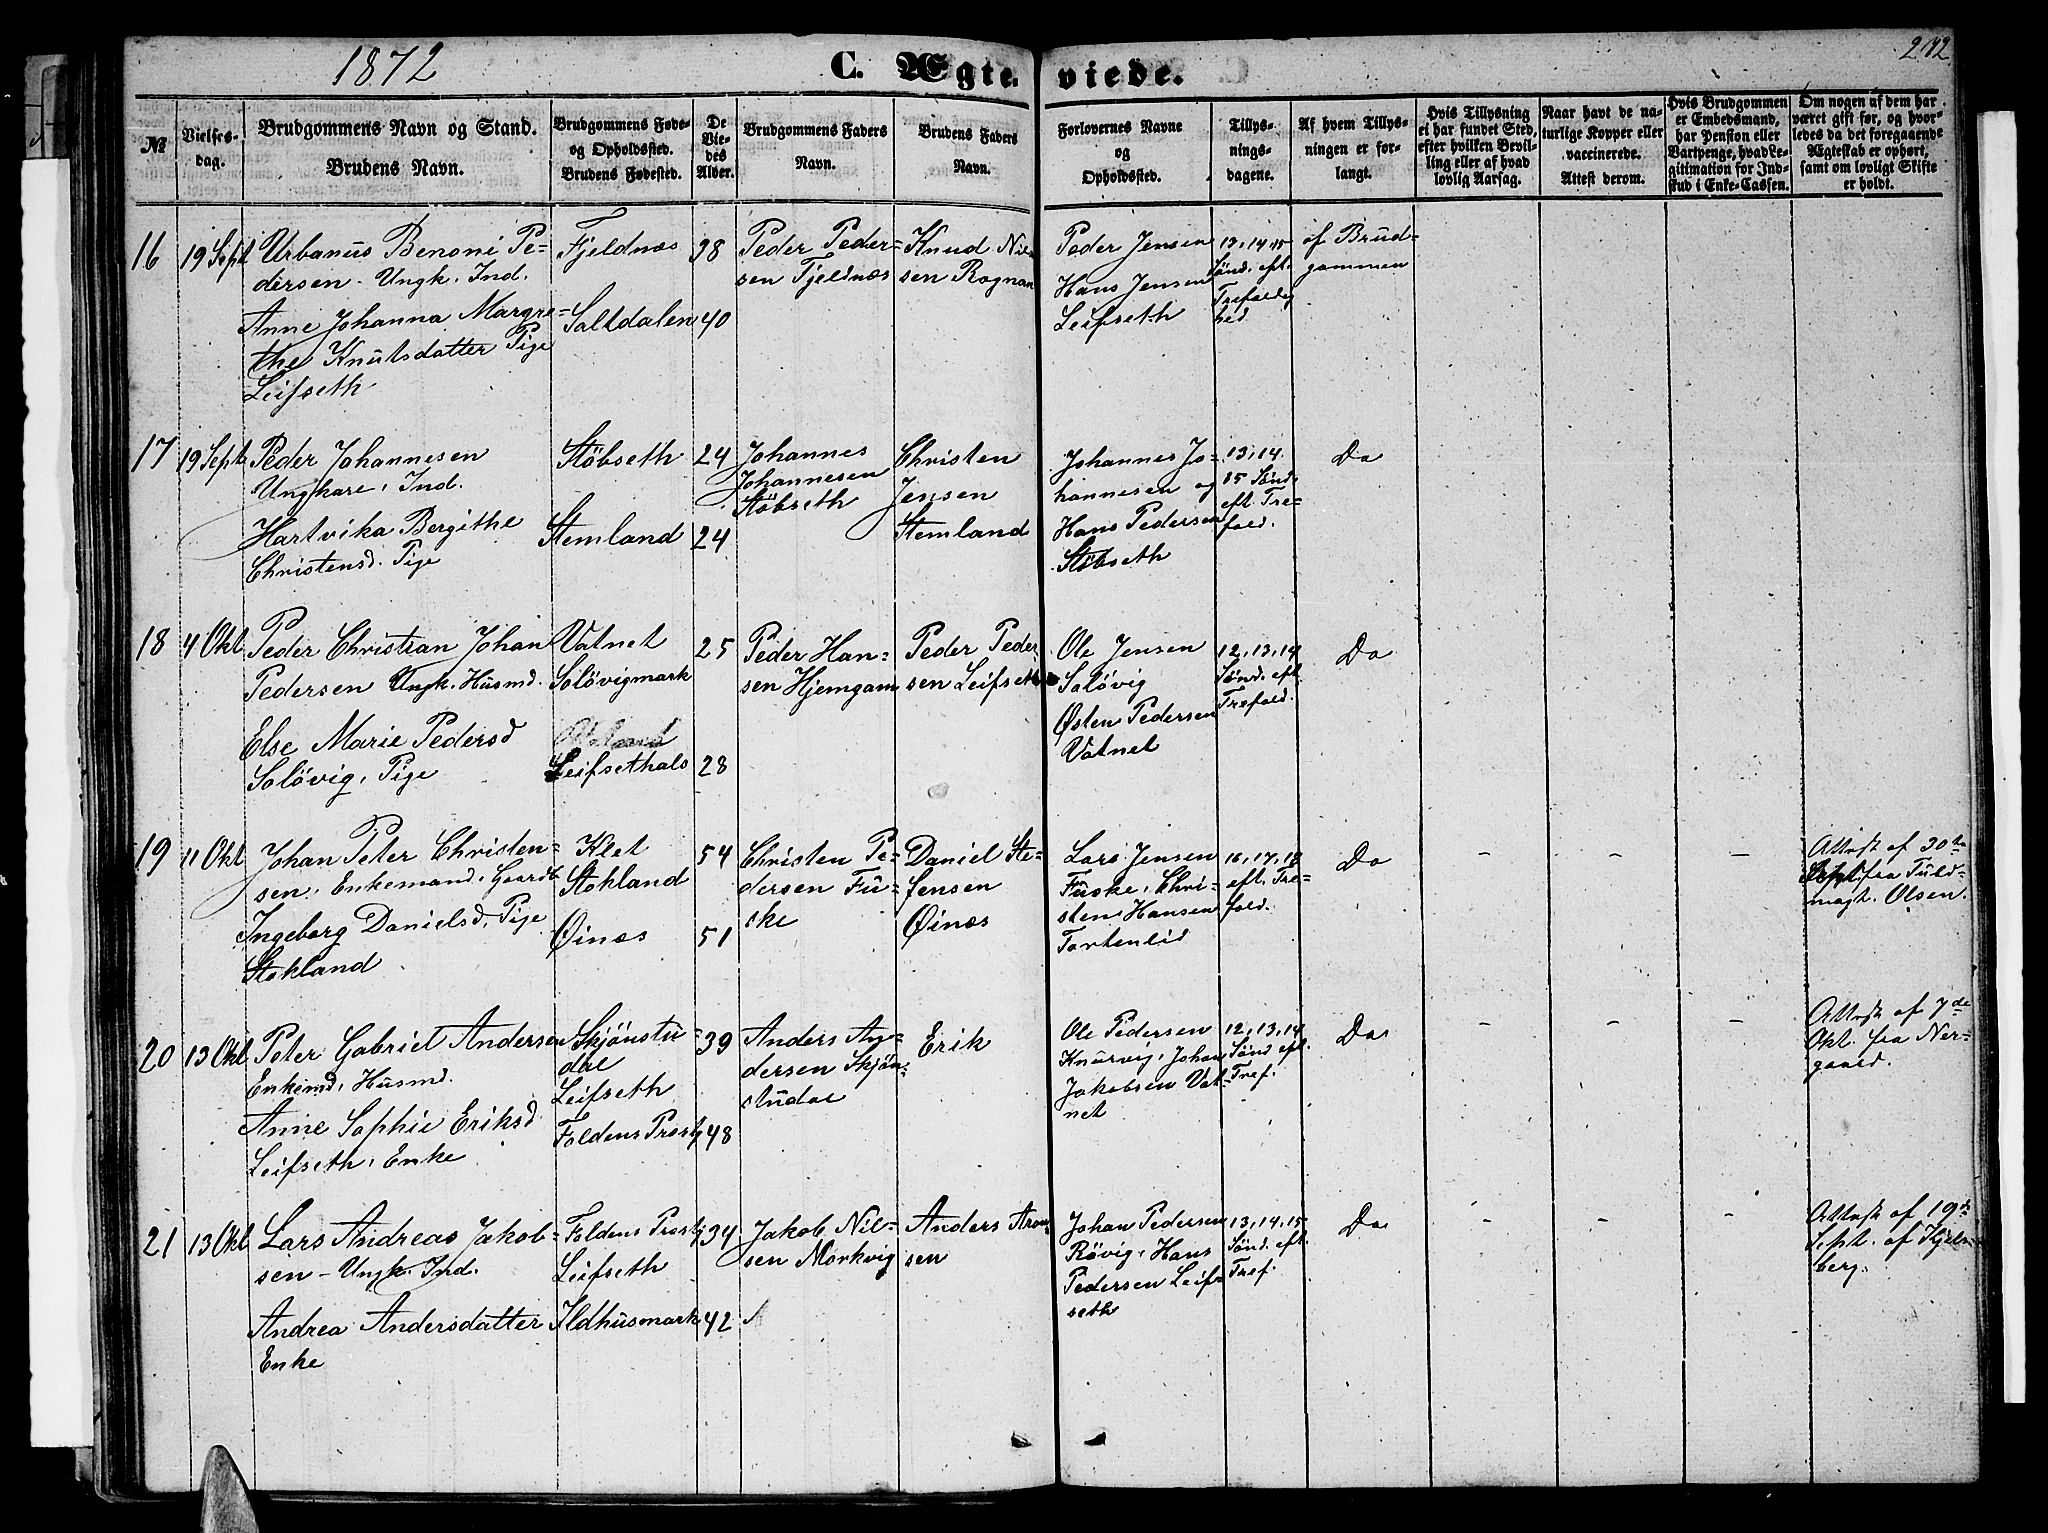 1872
C. Ægte-
viede.
272
№
Vielses-
dag.
Brudgommens Navn og Stand.
Brudens Navn.
Brudgommens Føde-
og Opholdssted.
Brudens Fødested.
De
Vie-
des
Alder.
Brudgommens Faders
Navn.
Brudens Faders
Navn.
Forlovernes Navne
og
Opholdssted.
Tillys-
nings-
dagene.
Af hvem Tillys-
ningen er for-
langt.
Hvis Tillysning
ei har fundet Sted,
efter hvilken Bevil-
ling eller af hvad
lovlig Aarsag.
Naar havt de na-
turlige Kopper eller
vaccinerede.
Attest derom.
Hvis Brudgommen
er Embedsmand,
har Pension eller
Vartpenge, hvad Le-
gitimation for Ind-
skud i Enke-Cassen.
Om nogen af dem har
været gift før, og hvor-
ledes da det foregaaende
Ægteskab er ophørt,
samt om lovligt Skifte
er holdt.
16
19 Sept
Urbanus Benoni Pe-
dersen - Ungk. Ind.
Anne Johanna Margre-
the Knutsdatter Pige
Leifseth
Fjeldnæs
Saltdalen
38
40
Peder Peder-
sen Fjeldnæs
Knud Nil-
sen Rognan
Peder Jensen
Hans Jensen
Leifseth
13, 14, 15
Sønd. eft.
Trefoldig
hed
af Brud-
gommen
17
19 Sept
Peder Johannesen
Ungkare, Ind.
Hartvika Bergithe
Christensd. Pige
Støbseth
Stemland
24
24
Johannes
Johannesen
Støbseth
Christen
Jensen
Stemland
Johannes Jo-
hannesen og
Hans Pedersen
Støbseth
13, 14.
15 Sønd.
eft. Tre-
fold.
Do
18
4 Okt
Peder Christian Johan
Pedersen Ungk. Husmd.
Else Marie Pedersd
Soløvig, Pige
Vatnet
Soløvigmark
Leifsethals
25
28
Peder Han-
sen Hjemgam
Peder Peder-
sen Leifseth
Ole Jensen
Soløvig
Østen Pedersen
Vatnet
12, 13, 14
Sønd. eft.
Trefold.
Do
19
11 Okt
Johan Peter Christen-
sen, Enkemand, Gaardb
Ingeborg Danielsd, Pige
Stokland
Klet
Stokland
Øinæs
54
51
Christen Pe-
dersen Fu-
ske
Daniel Ste-
fensen
Øinæs
Lars Jensen
Fuske, Chri-
sten Hansen
Tortenlid
16, 17, 18
eft. Tre-
fold.
Do
-
-
-
Attest af 30te
Sept. fra Fuld-
magt. Olsen.
20
13 Okt
Peter Gabriel Andersen
Enkemd, Husmd.
Anne Sophie Eriksd
Leifseth, Enke
Skjønstu-
dal
Leifseth
Foldens Prestg
39
48
Anders An-
dersen Skjøn-
studal
Erik
Ole Pedersen
Knurvig, Johan
Jakobsen Vat-
net
12, 13, 14
Sønd eft.
Tref.
Do
-
-
-
Attest af 7de
Okt. fra Ner-
gaard.
21
13 Okt
Lars Andreas Jakob-
sen - Ungk. Ind.
Andrea Andersdatter
Enke
Foldens Prestg
Leifseth
Ildhusmark
34
42
Jakob Nil-
sen Morkvig
Anders Aron-
sen
Johan Pedersen
Røvig, Hans
Pedersen Leif-
seth
13, 14, 15
Sønd. eft.
Tref.
Do
-
-
-
Attest af 19de
Sept. af Kjels-
berg.